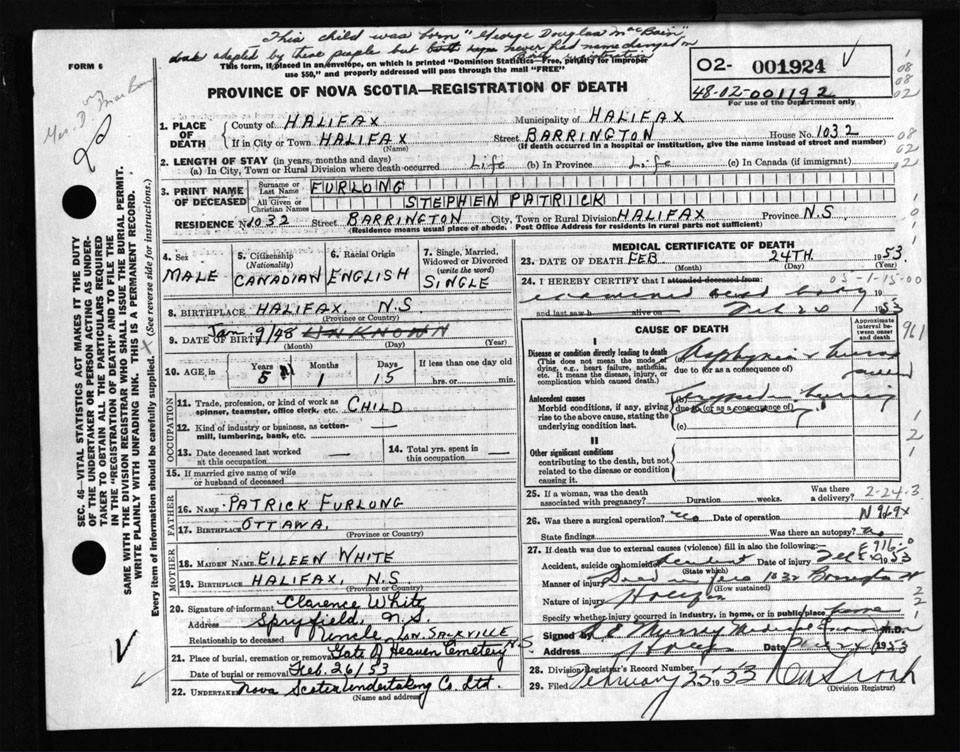 This child was born "George Douglas MacBain"
adopted by these people but never had name changed on
FORM 6
This form, if placed in an envelope, on which is printed "Dominion Statistics—Free, penalty for improper
use $50," and properly addressed will pass through the mail "FREE"
O2- 001924
48-02-001192
For use of the Department only
PROVINCE OF NOVA SCOTIA—REGISTRATION OF DEATH
1. PLACE OF DEATH
County of HALIFAX Municipality of HALIFAX
If in City or Town HALIFAX Street BARRINGTON House No. 1032
(Name) (If death occurred in a hospital or institution, give the name instead of street and number)
2. LENGTH OF STAY (in years, months and days)
(a) In City, Town or Rural Division where death occurred Life (b) In Province Life (c) In Canada (if immigrant)
3. PRINT NAME OF DECEASED
Surname or Last Name FURLONG
All Given or Christian Names STEPHEN PATRIICK
RESIDENCE No. 1032 Street BARRINGTON City, Town or Rural Division HALIFAX Province N.S.
(Residence means usual place of abode. Post Office Address for residents in rural parts not sufficient)
SEC. 46—VITAL STATISTICS ACT MAKES IT THE DUTY
OF THE UNDERTAKER OR PERSON ACTING AS UNDER-
TAKER TO OBTAIN ALL THE PARTICULARS REQUIRED
IN THE "REGISTRATION OF DEATH" AND TO FILE THE
SAME WITH THE DIVISION REGISTRAR WHO SHALL ISSUE THE BURIAL PERMIT.
WRITE PLAINLY WITH UNFADING INK. THIS IS A PERMANENT RECORD.
Every item of information should be carefully supplied. X (See reverse side for instructions.)
4. Sex MALE
5. Citizenship (Nationality) CANADIAN
6. Racial Origin ENGLISH
7. Single, Married, Widowed or Divorced (write the word) SINGLE
8. BIRTHPLACE HALIFAX, N.S.
(Province or Country)
9. DATE OF BIRTH Jan 9/48 UNKNOWN
(Month) (Day) (Year)
10. AGE Years 5 Months 1 Days 15 If less than one day old
hrs. or min.
OCCUPATION
11. Trade, profession, or kind of work as
spinner, teamster, office clerk, etc. CHILD
12. Kind of industry or business, as cotton-
mill, lumbering, bank, etc.
13. Date deceased last worked at this occupation —
14. Total yrs. spent in this occupation —
15. If married give name of wife
or husband of deceased
FATHER
16. NAME PATRICK FURLONG
17. BIRTHPLACE OTTAWA.
(Province or Country)
MOTHER
18. MAIDEN NAME EILEEN WHITE
19. BIRTHPLACE HALIFAX, N.S.
(Province or Country)
20. Signature of informant Clarence White
Address Spryfield, N.S.
Relationship to deceased Uncle
21. Place of burial, cremation or removal Gate of Heaven Cemetery LR. SACKVILLE N.S.
Date of burial or removal Feb. 26/53
22. UNDERTAKER Nova Scotia Undertaking Co. Ltd.
(Name and address)
MEDICAL CERTIFICATE OF DEATH
23. DATE OF DEATH FEB 24TH. 1953
(Month) (Day) (Year)
24. I HEREBY CERTIFY that I attended deceased from:
05-1-15-00
examined dead body 19
and last saw h alive on Feb 24 1953
CAUSE OF DEATH
Approximate interval between onset and death
I
Disease or condition directly leading to death
(This does not mean the mode of dying, e.g., heart failure, asthenia, etc. It means the disease, injury, or complication which caused death.)
(a) Asphyxia
due to (or as a consequence of)
Antecedent causes
Morbid conditions, if any, giving rise to the above cause, stating the underlying condition last.
due to (or as a consequence of)
(c)
II
Other significant conditions
contributing to the death, but not related to the disease or condition causing it.
25. If a woman, was the death associated with pregnancy? Duration weeks. Was there a delivery? 2-24-3
26. Was there a surgical operation? no Date of operation N969x
State findings Was there an autopsy? no
27. If death was due to external causes (violence) fill in also the following: E916.0
Accident, suicide or homicide Accident Date of injury Feb 24 1953
(State which)
Manner of injury 1032 Barrington St
(How sustained)
Nature of injury Halifax
Specify whether injury occurred in industry, in home, or in public place home
Signed by Medical Examiner M.D.
Address Halifax Date Feb 24 1953
28. Division Registrar's Record Number
29. Filed February 25 1953
(Division Registrar)